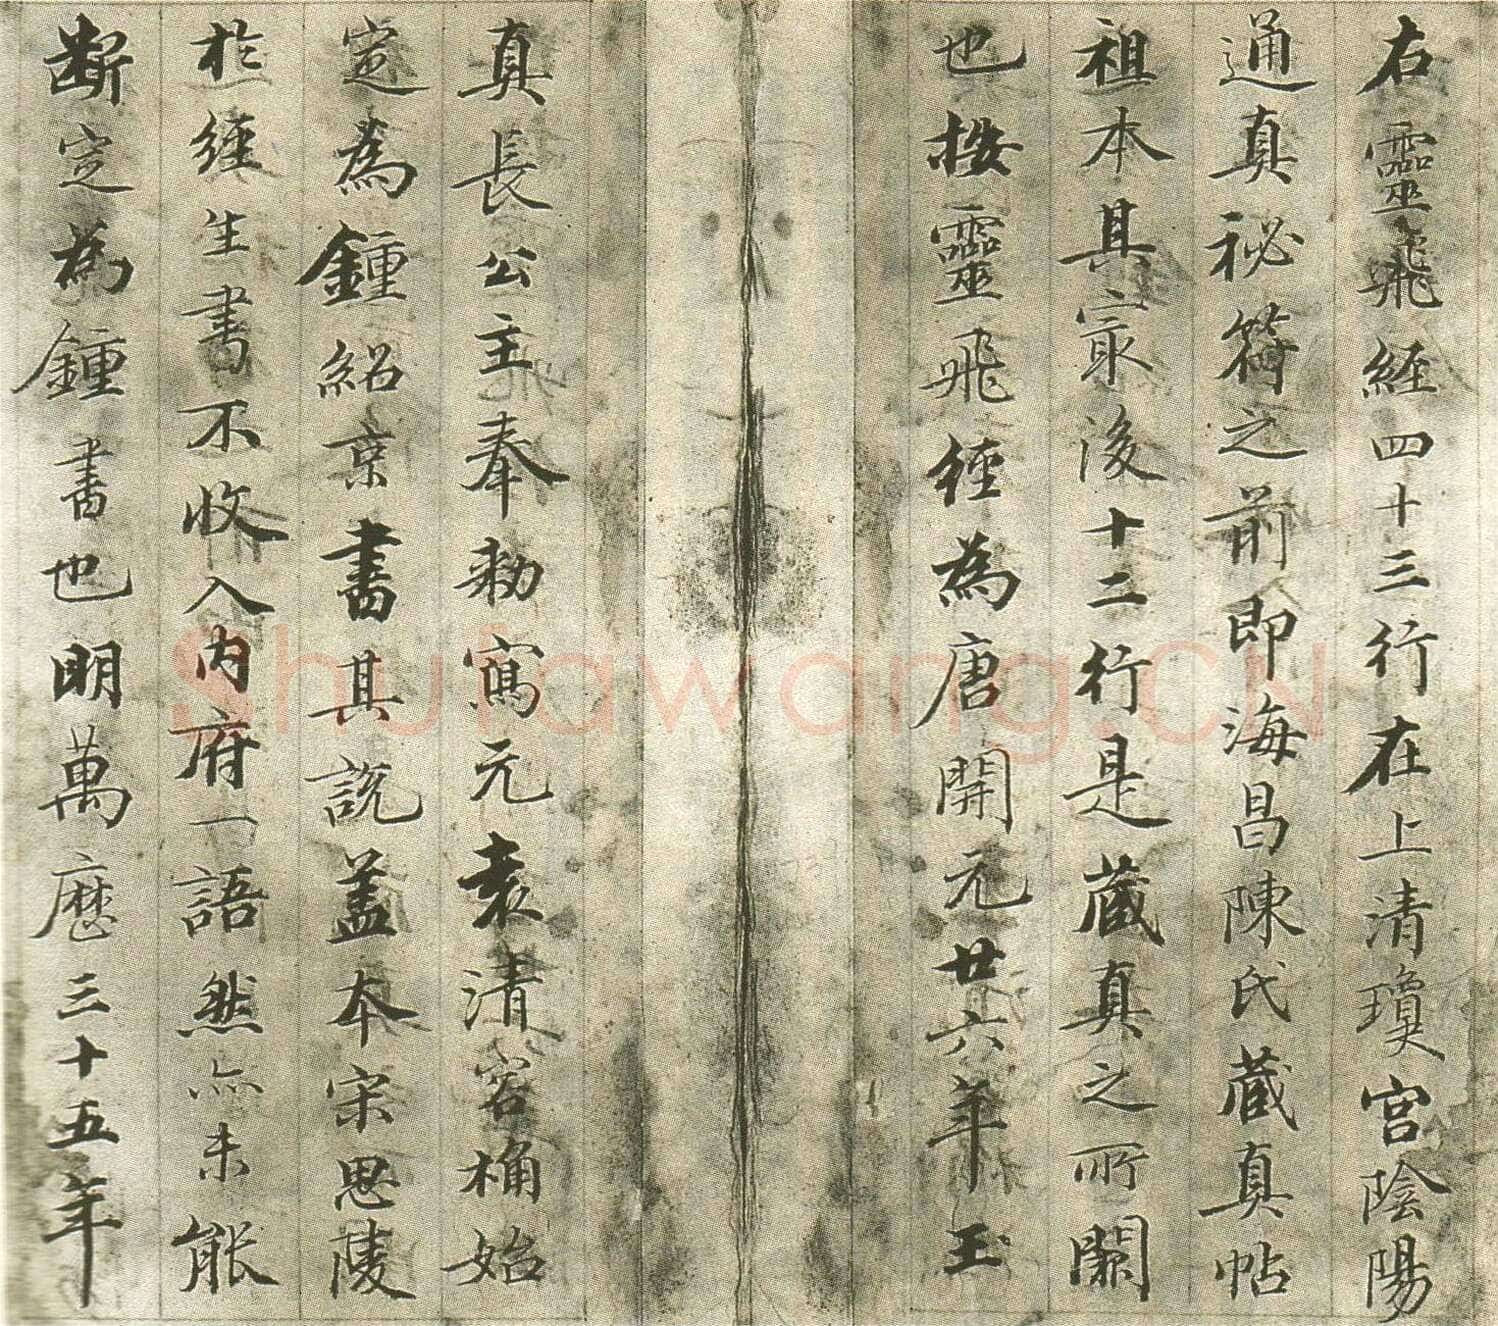 右靈飛經四十三行在上清瓊宮陰陽
通真秘符之前即海昌陳氏藏真帖
祖本其㝡後十二行是藏真之所闕
也按靈飛經為唐開元廿六年玉
真長公主奉勅寫元袁清容桷始
定為鍾紹京書其說盖本宋思陵
於經生書不收入內府一語然亦未能
斷定為鍾書也明萬曆三十五年
Shufawang.CN